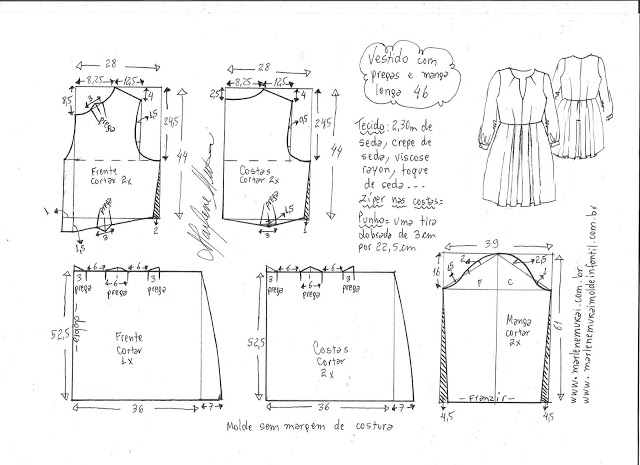 28
8,25 12,5
4
8,5
3
prega
1,5
24,5
44
Frente
cortar 2x
prega
3
2
1
1,5
28
8,25 12,5
2,5
4
0,5
24,5
44
Costas
cortar 2x
prega
3
1,5
1
Marlene Mukai
Vestido com
pregas e manga
longa 46
Tecido: 2,30m de
seda, crepe de
seda, viscose
rayon, toque
de seda...
Zíper nas costas=
Punho= uma tira
dobrada de 3cm
por 22,5cm
6 6
3 3
prega prega prega
52,5
dobra
Frente
cortar
1x
36 7
6 6
3 3
prega prega prega
52,5
Costas
cortar
2x
36 7
39
16
1,5 2 2,5
F C
61
Manga
cortar
2x
-Franzir-
4,5 4,5
www.marlenemukai.com.br
www.marlenemukaimoldeinfantil.com.br
Molde sem margem de costura